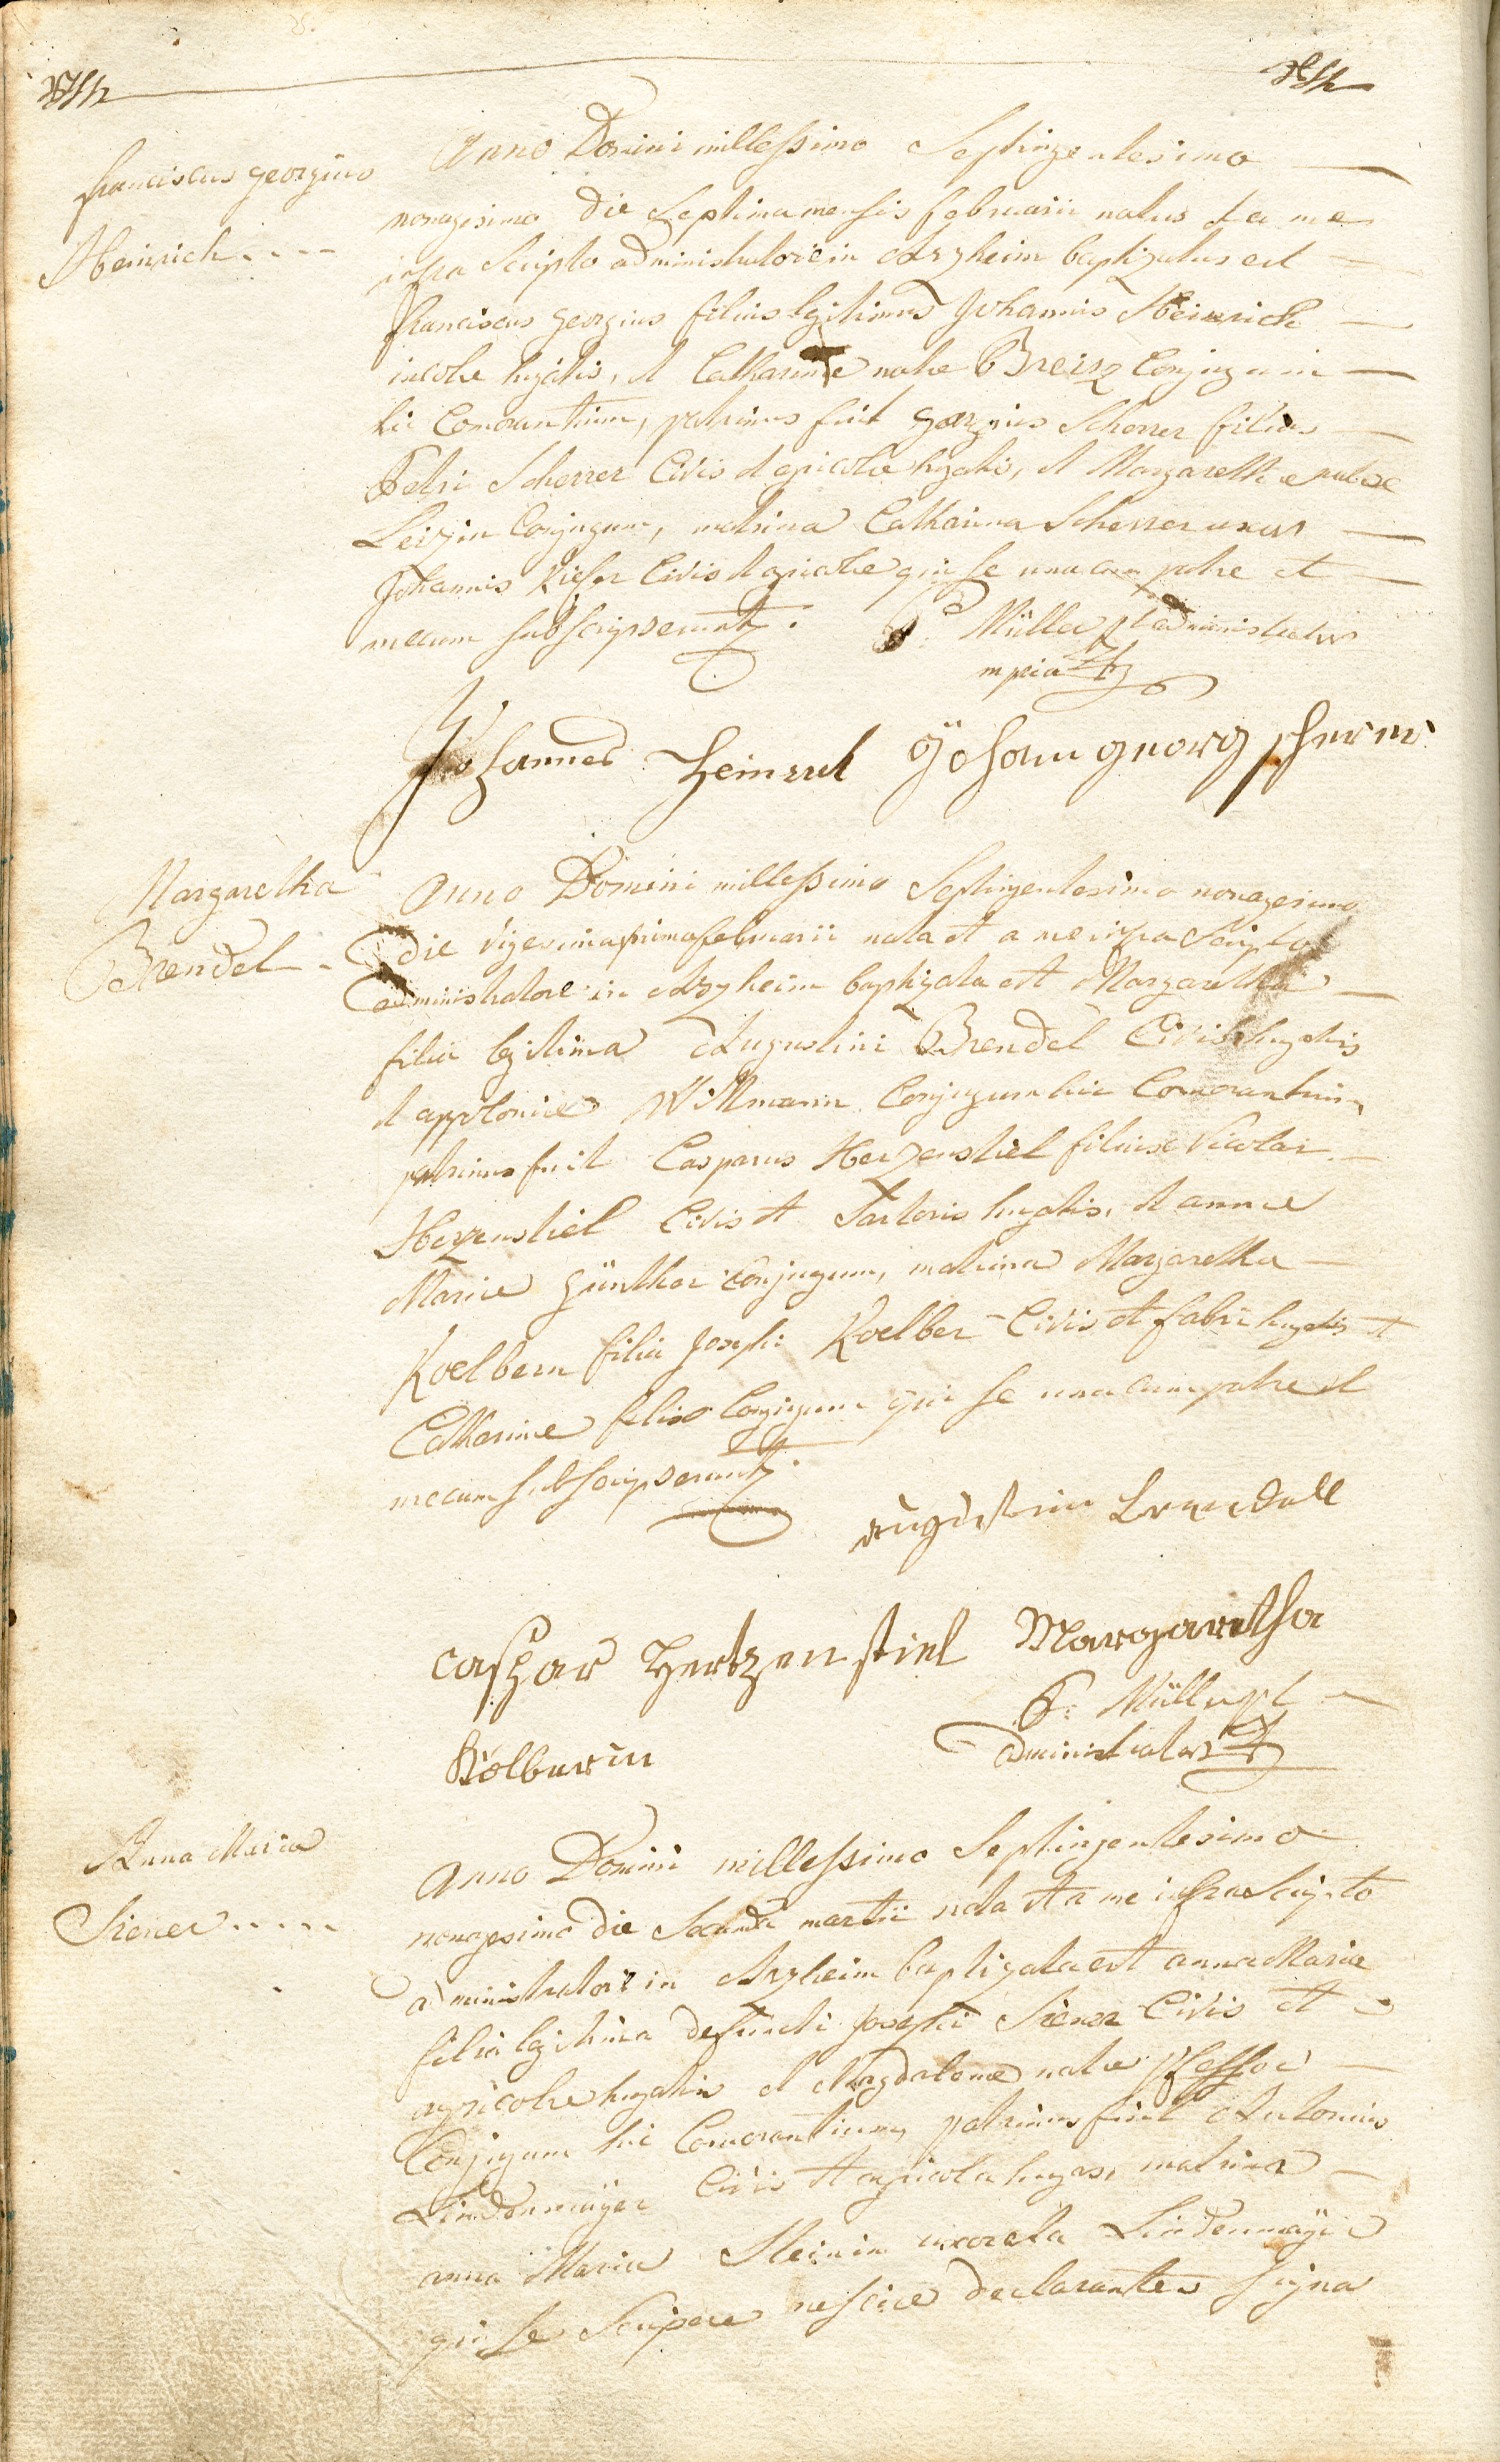 franciscus georgius
Heinrich....
Anno Domini millessimo Septingentesimo
nonagesimo die Septima mensis februarii natus et a me
infra Scripto administratore in Arzheim baptizatus est
franciscus georgius filius legitimus Johannis Heinrich
incolae hujatis, et Catharinae natae Conjugum
hic Comorantium, patrinus fuit georgius Scherrer filius
Petri Scherrer Civis et agricolae hujatis, et Margarethae natae
Conjugum, matrina Catharina Scherrer uxor
Johannis Kiefer Civis et agricolae qui se una cum patre et
mecum subscripserunt.
P. Müller pt administrator
mpria
Johannes Heinrich Johann georg scherrer
Margaretha
Brendel
Anno Domini millessimo Septingentesimo nonagesimo
die vigesima prima februarii nata et a me infra Scripto
administratore in Arzheim baptizata est Margaretha
filia legitima Augustini Brendel Civis hujatis
et appoloniae Willmann Conjugum hic Comorantium,
patrinus fuit Casparus Herzenstiel filius Nicolai
Herzenstiel Civis et Sartoris hujatis, et annae
Mariae günther Conjugum, matrina Margaretha
Koelbern filia Josephi Koelber Civis et fabri hujatis et
Catharinae Conjugum qui se una cum patre et
mecum subscripserunt.
augustin brendell
Caspar Hertzenstiel Margaretha
P. Müller pt
Kölberin administrator
Anna Maria
Siener.....
Anno Domini millessimo Septingentesimo
nonagesimo die Secunda martii nata et a me infra Scripto
administratore in Arzheim baptizata est anna Maria
filia legitima defuncti Josephi Siener Civis et
agricolae hujatis et Magdalenae natae
Conjugum hic Comorantium, patrinus fuit Antonius
Lindenmaÿer Civis et agricola hujas, matrina
anna Maria Lindenmaÿer
qui se Scribere nescire declarantes signa